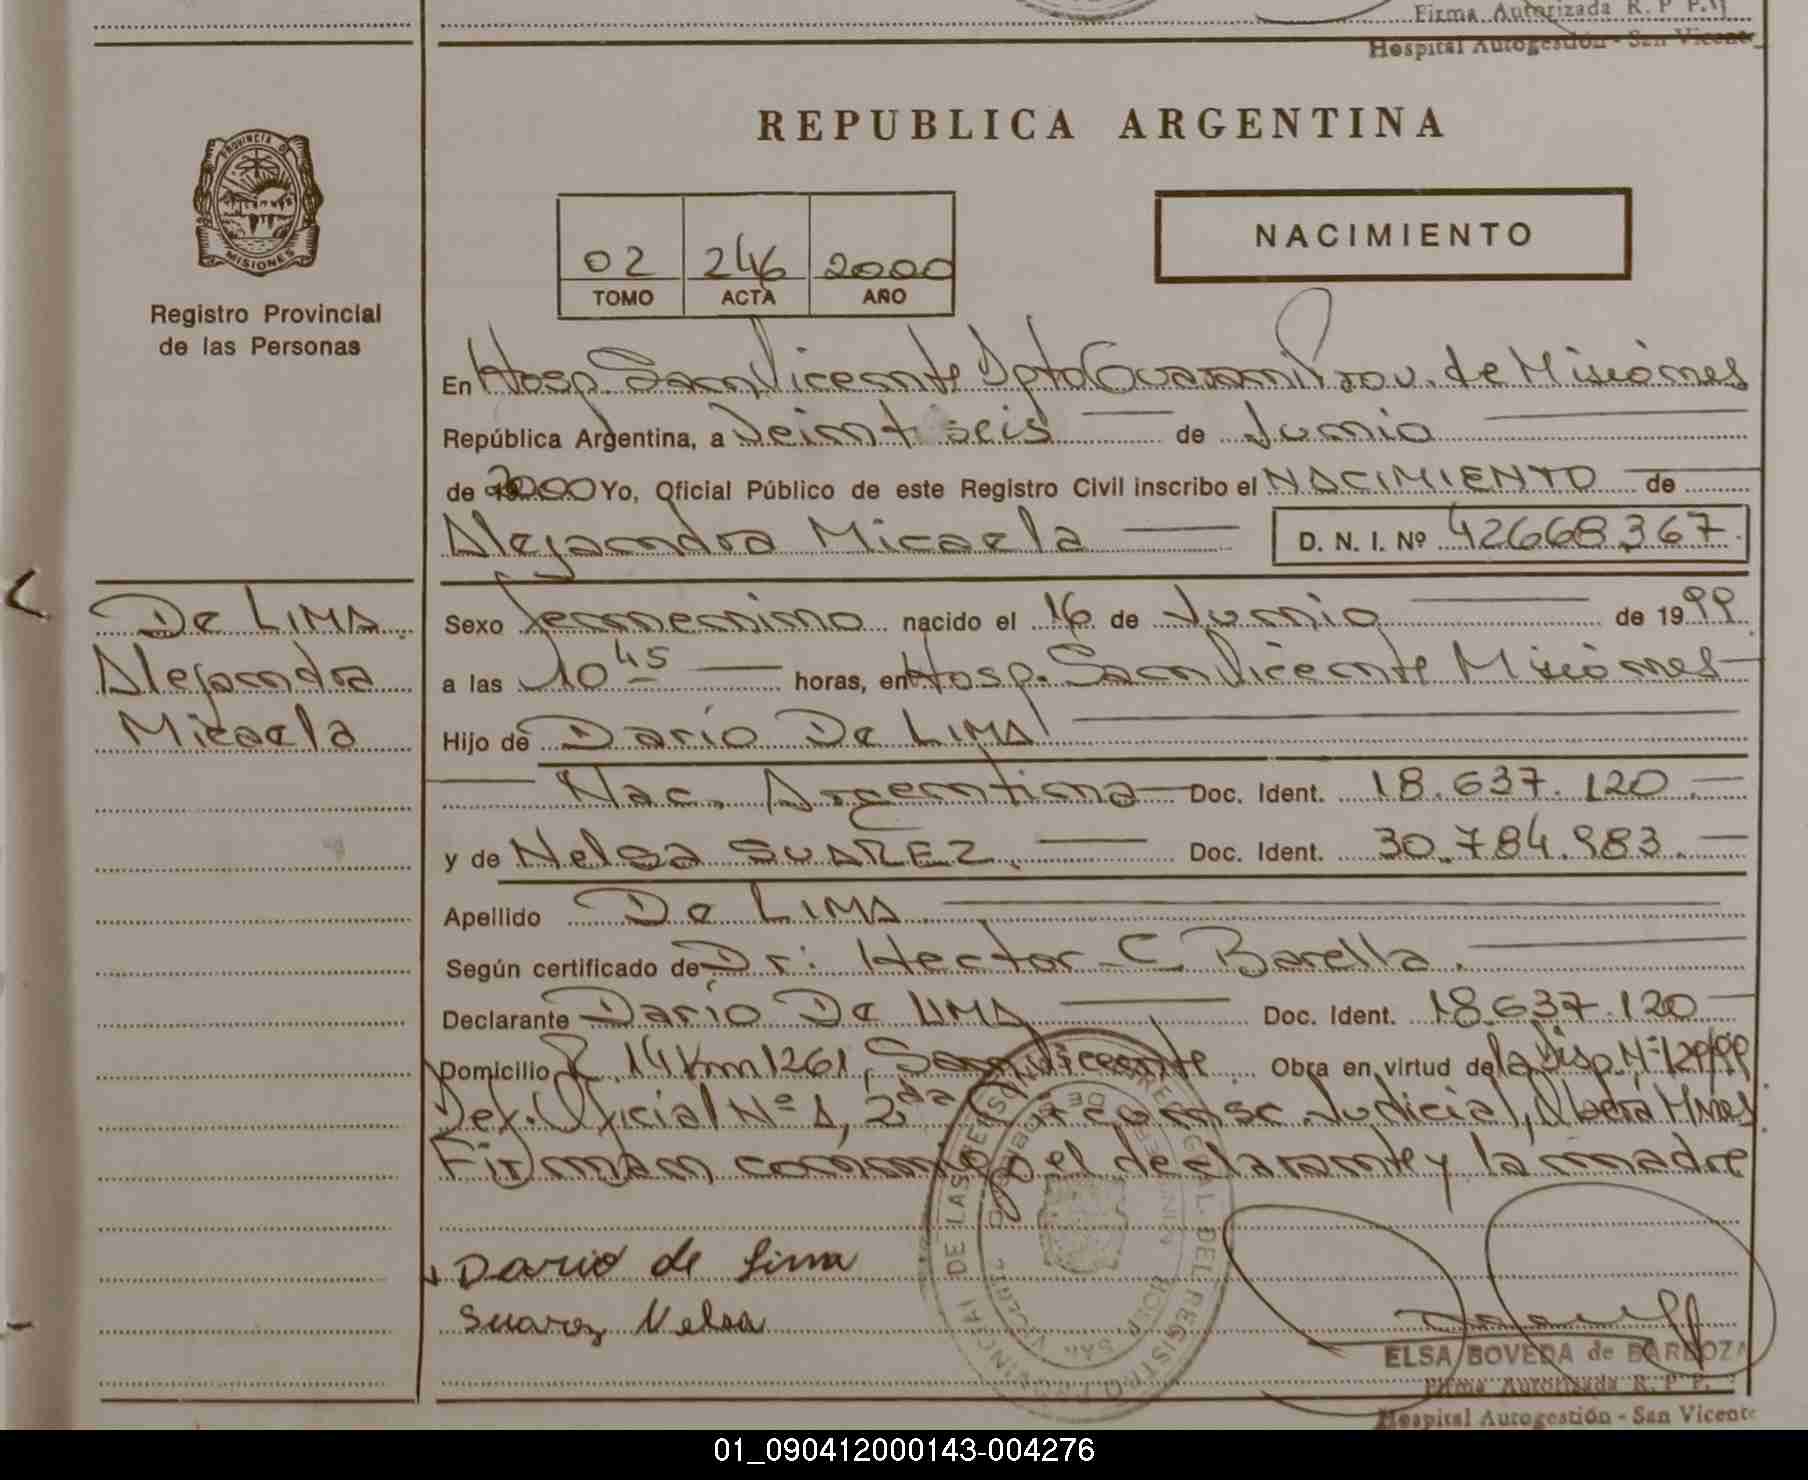 Firma Autorizada R. P P.
Hospital Autogestión - San Vicente
REPUBLICA ARGENTINA
PROVINCIA DE
MISIONES
Registro Provincial
de las Personas
02 246 2000
TOMO ACTA AÑO
NACIMIENTO
En Hosp. San Vicente Dpto Guarani Prov. de Misiones
República Argentina, a Veinti seis de Junio
de 2000 Yo, Oficial Público de este Registro Civil inscribo el NACIMIENTO de
Alejandra Micaela D. N. I. Nº 42668.367
De LIMA
Alejandra
Micaela
Sexo femenino nacido el 16 de Junio de 1999
a las 10 45 horas, en Hosp. San Vicente Misiones
Hijo de Darío De LIMA
Nac. Argentina Doc. Ident. 18.637.120
y de Nelsa SUAREZ. Doc. Ident. 30.784.983.
Apellido De LIMA
Según certificado de Dr: Hector C Barella.
Declarante Darío De LIMA Doc. Ident. 18.637.120
Domicilio R. 14 Km 1261, San Vicente. Obra en virtud de la Disp. Nº 129/99
Def. Oficial Nº 1, 2da Circunsc. Judicial, Oberá Mnes.
Firman conmigo el declarante y la madre
Dario de Lima
Suarez Nelsa
ELSA BOVEDA de BARBOZA
Firma Autorizada R. P P.
Hospital Autogestión - San Vicente
01_090412000143-004276